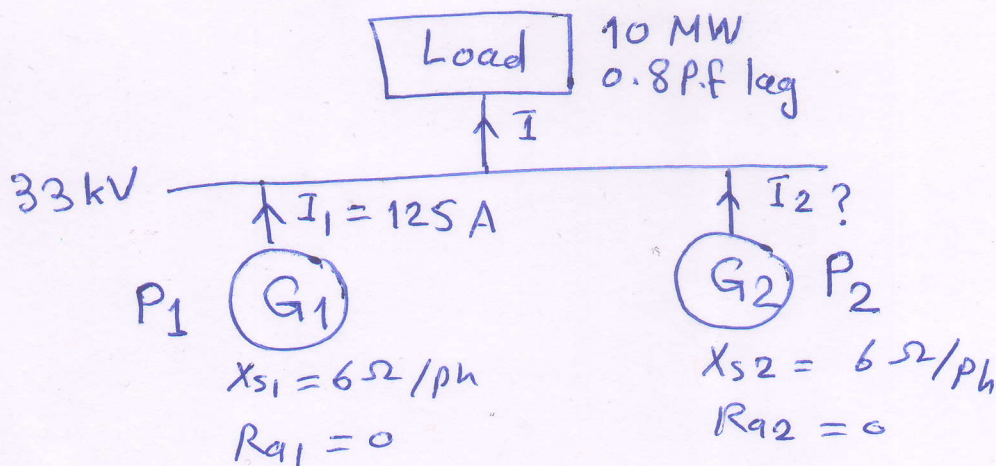 Load
10 MW
0.8 P.f lag
I
33 kV
I1 = 125 A
I2 ?
P1
G1
G2
P2
Xs1 = 6 Ω/ph
Ra1 = 0
Xs2 = 6 Ω/ph
Ra2 = 0